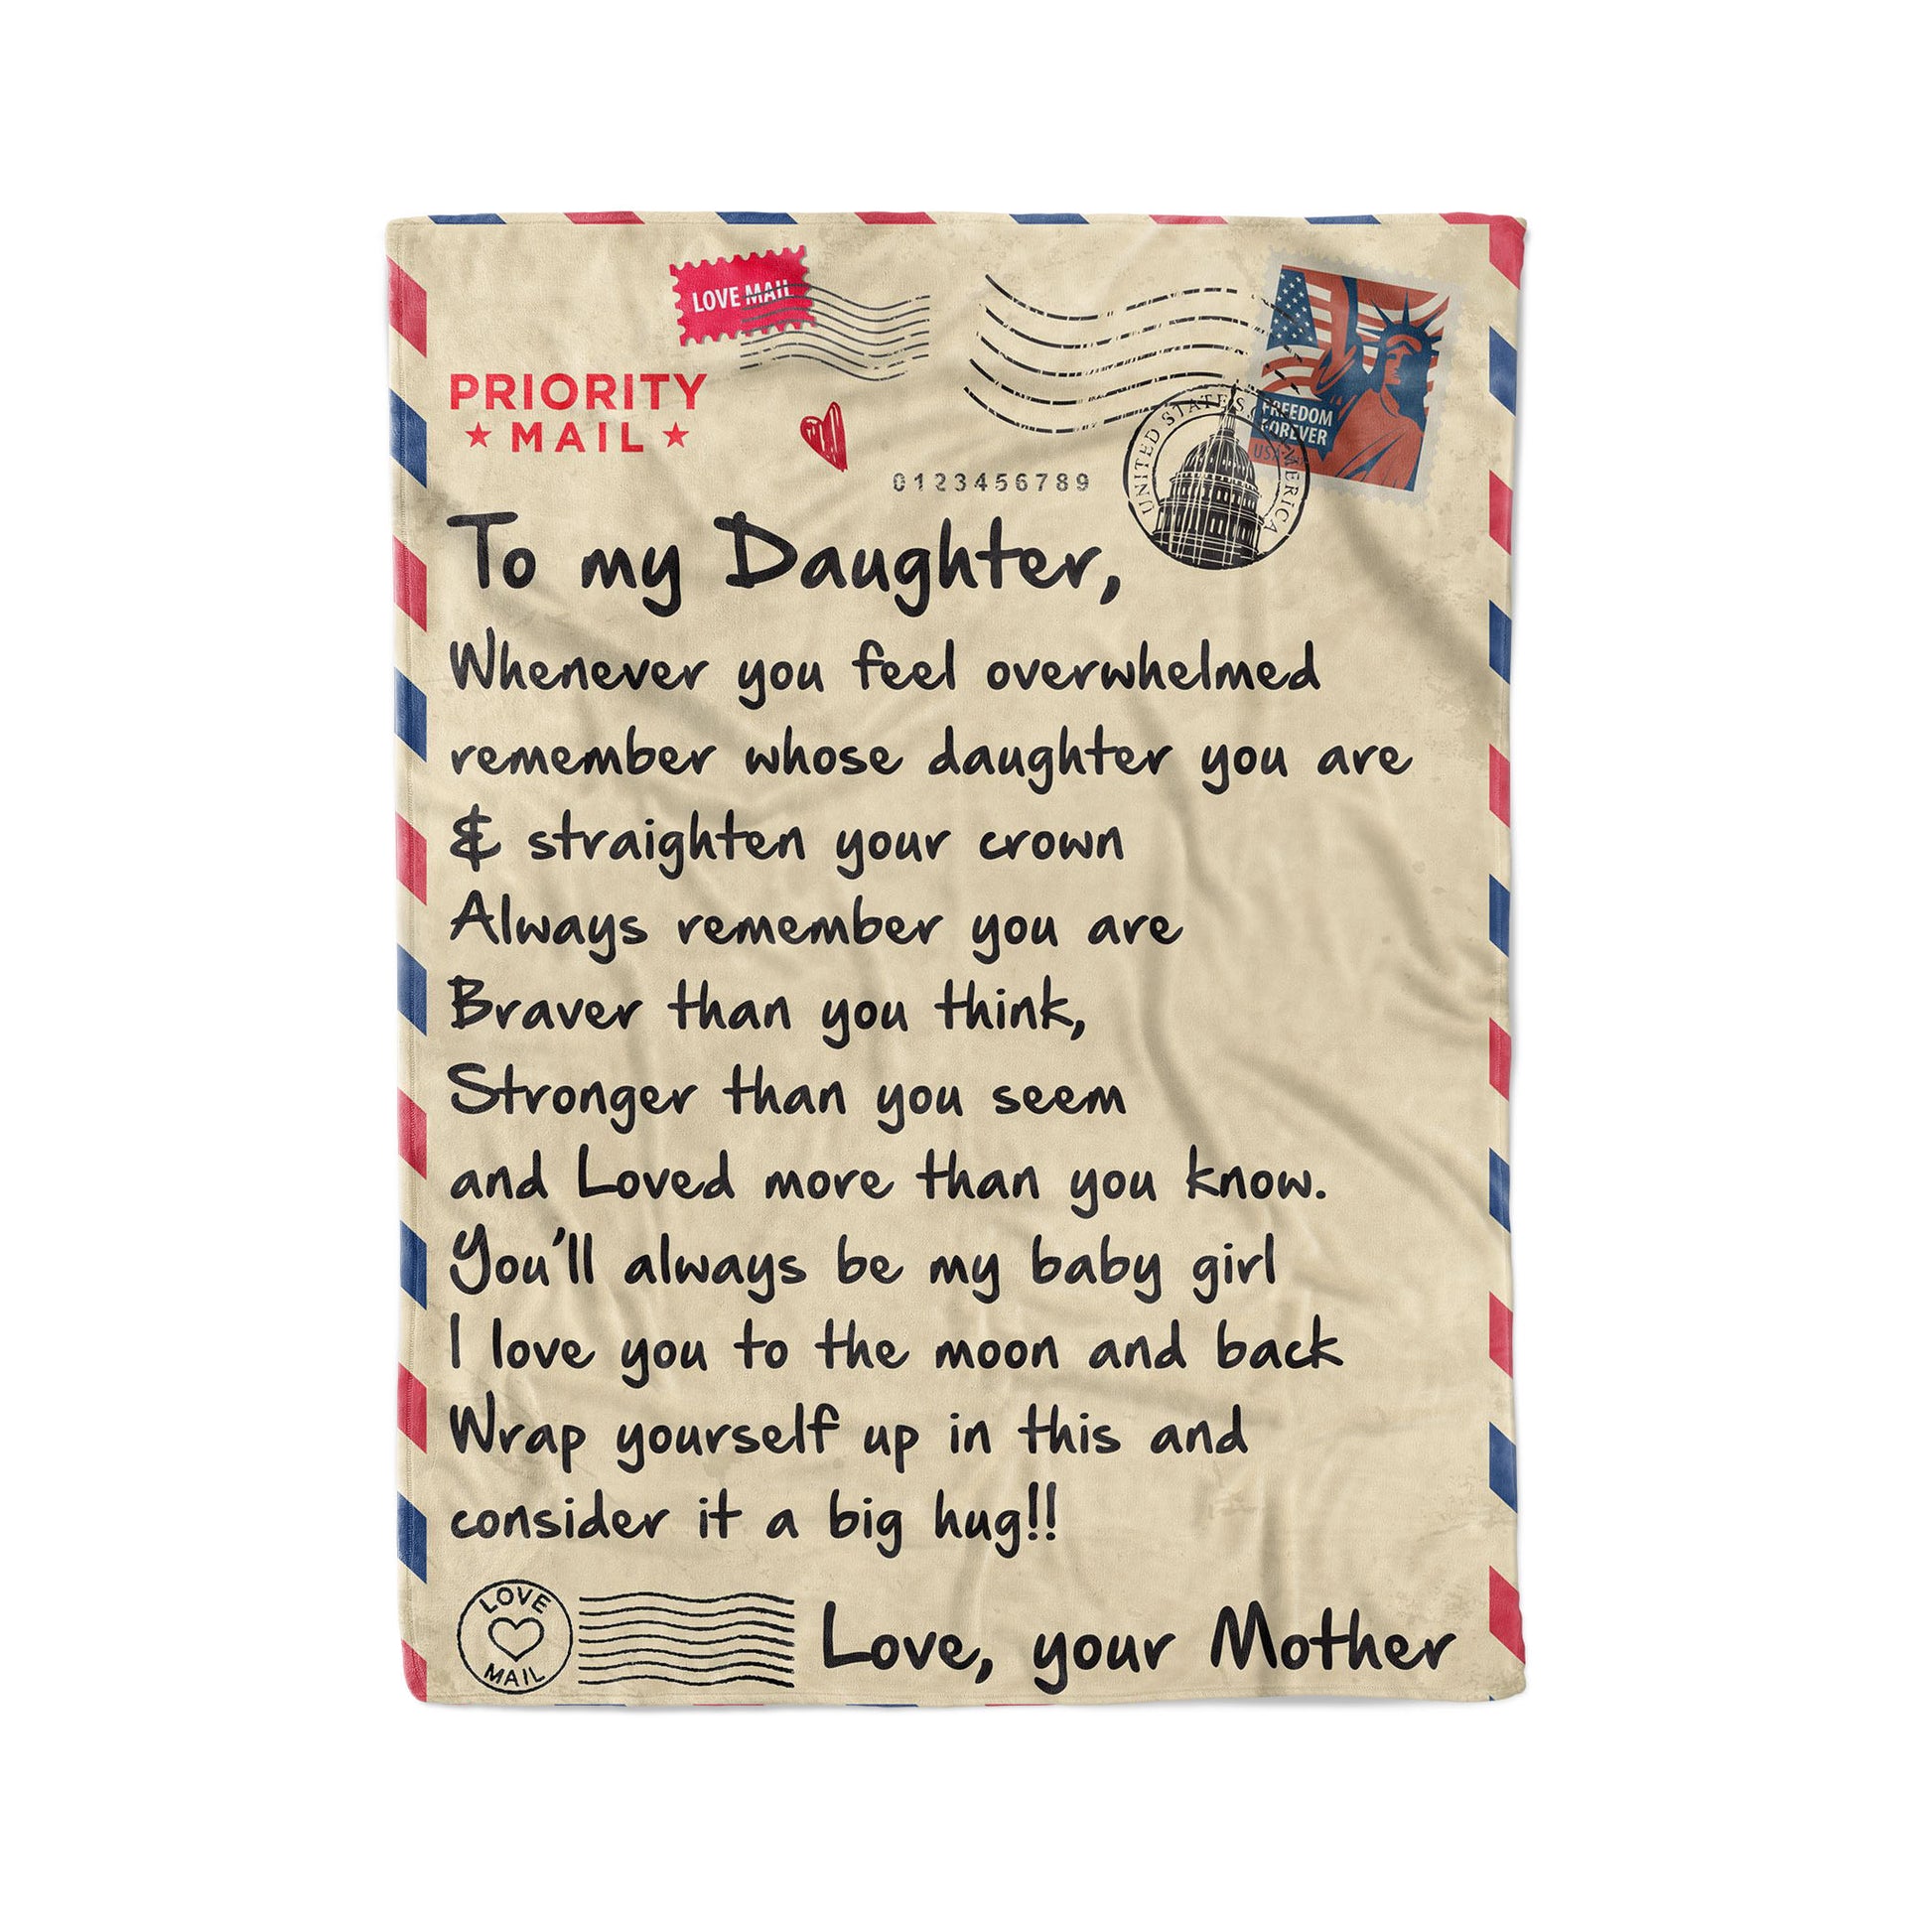 LOVE MAIL
PRIORITY
★ MAIL ★
0123456789
UNITED STATES AMERICA
FREEDOM
FOREVER
USA
To my Daughter,
Whenever you feel overwhelmed
remember whose daughter you are
& straighten your crown
Always remember you are
Braver than you think,
Stronger than you seem
and Loved more than you know.
You'll always be my baby girl
I love you to the moon and back
Wrap yourself up in this and
consider it a big hug!!
LOVE
MAIL
Love, your Mother